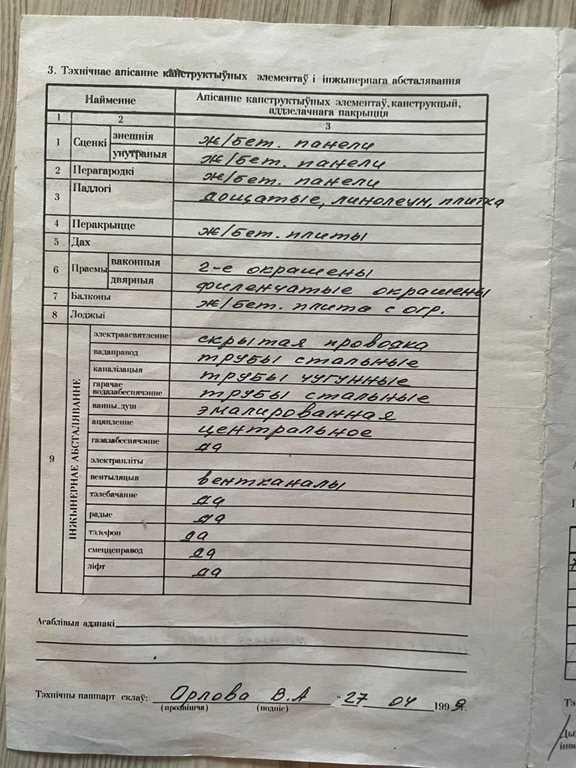 3. Тэхнічнае апісанне канструктыўных элементаў і інжынернага абсталявання
Найменне
Апісанне канструктыўных элементаў, канструкцый, аддзелачнага пакрыцця
1 2 3
1 Сценкі знешнія ж/бет. панели
унутраныя ж/бет. панели
2 Перагародкі ж/бет. панели
3 Падлогі дощатые, линолеум, плитка
4 Перакрыцце ж/бет. плиты
5 Дах
6 Праемы ваконныя 2-е окрашены
дзвярныя филенчатые окрашены
7 Балконы ж/бет. плита с огр.
8 Лоджыі
9 ІНЖЫНЕРНАЕ АБСТАЛЯВАННЕ
электраасвятленне скрытая проводка
вадаправод трубы стальные
каналізацыя трубы чугунные
гарачае водазабеспячэнне трубы стальные
ванны, душ эмалированная
ацяпленне центральное
газазабеспячэнне да
электрапліты
вентыляцыя вентканалы
тэлебачанне да
радыё да
тэлефон да
смеццеправод да
ліфт да
Асаблівыя адзнакі
Тэхнічны пашпарт склаў: Орлова В.А 27 04 1999г.
(прозвішча) (подпіс)